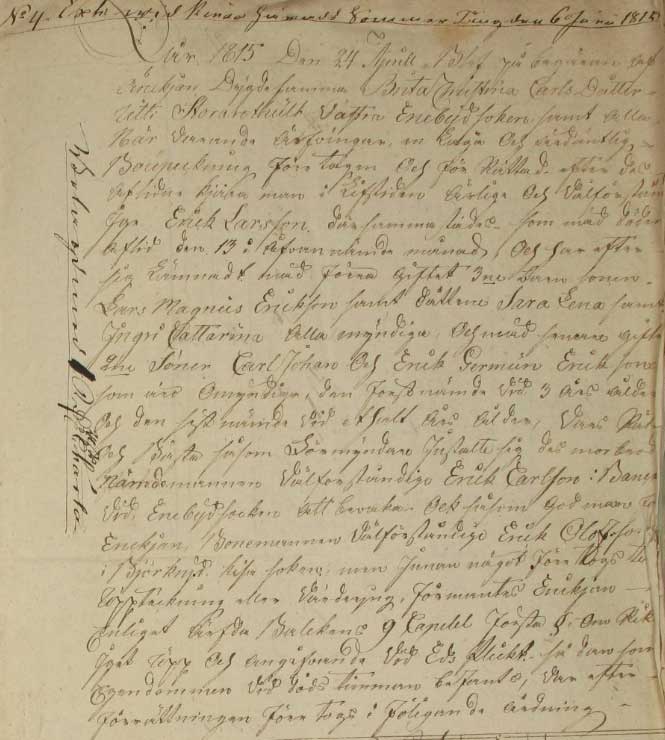 No 4. Exh. wid Kinda Härads Sommar Ting den 6 Juni 1815
År 1815 Den 24 April Blef på begäran af
Enckjan Dygdesamma Brita Christina Carls Dotter
Västra Eneby socken samt alla
När varande arfvingar, en Laga Och ordäntlig
Bouptekning före tagen Och för Rättad efter des
aflidne kjära man i Lifstiden ärlige Och välförstån
Erick Larsson där sammastädes som med döden
aflid den 13 i åfvannämde månad, Och har efter
sig Lämnadt med förra giftet 3ne Barn sonen
Lars Magnus Erickson samt döttrarne Sara Lena samt
Ingri Cattarina alla myndiga, Och med senare gifte
2ne Söner Carl Johan Och Erick German Erick söner
som äro Omyndige, den förstnämde vid 3 års ålder
Och den sist nämde vid ethalt års ålder, vars Rätt
Och Bästa såsom Förmyndare Instälte sig des morbror
Nämdemannen Välförståndige Erick Carlson i
vid Eneby socken att bevaka. Ock såsom god man för
Enckjan, Bonemannen välförståndige Erick Olofsson
i Kisa soken, men innan något före togs till
Upptekning eller värdering, förmantes Enckjan
Enligt ärfda Balckens 9 Capitel första § om Rik
tigt upp Och angifvande vid Eds Plickt så dan som
Egendommen vid döds timman befants, var efter
förrättningen före togs i följande ordning